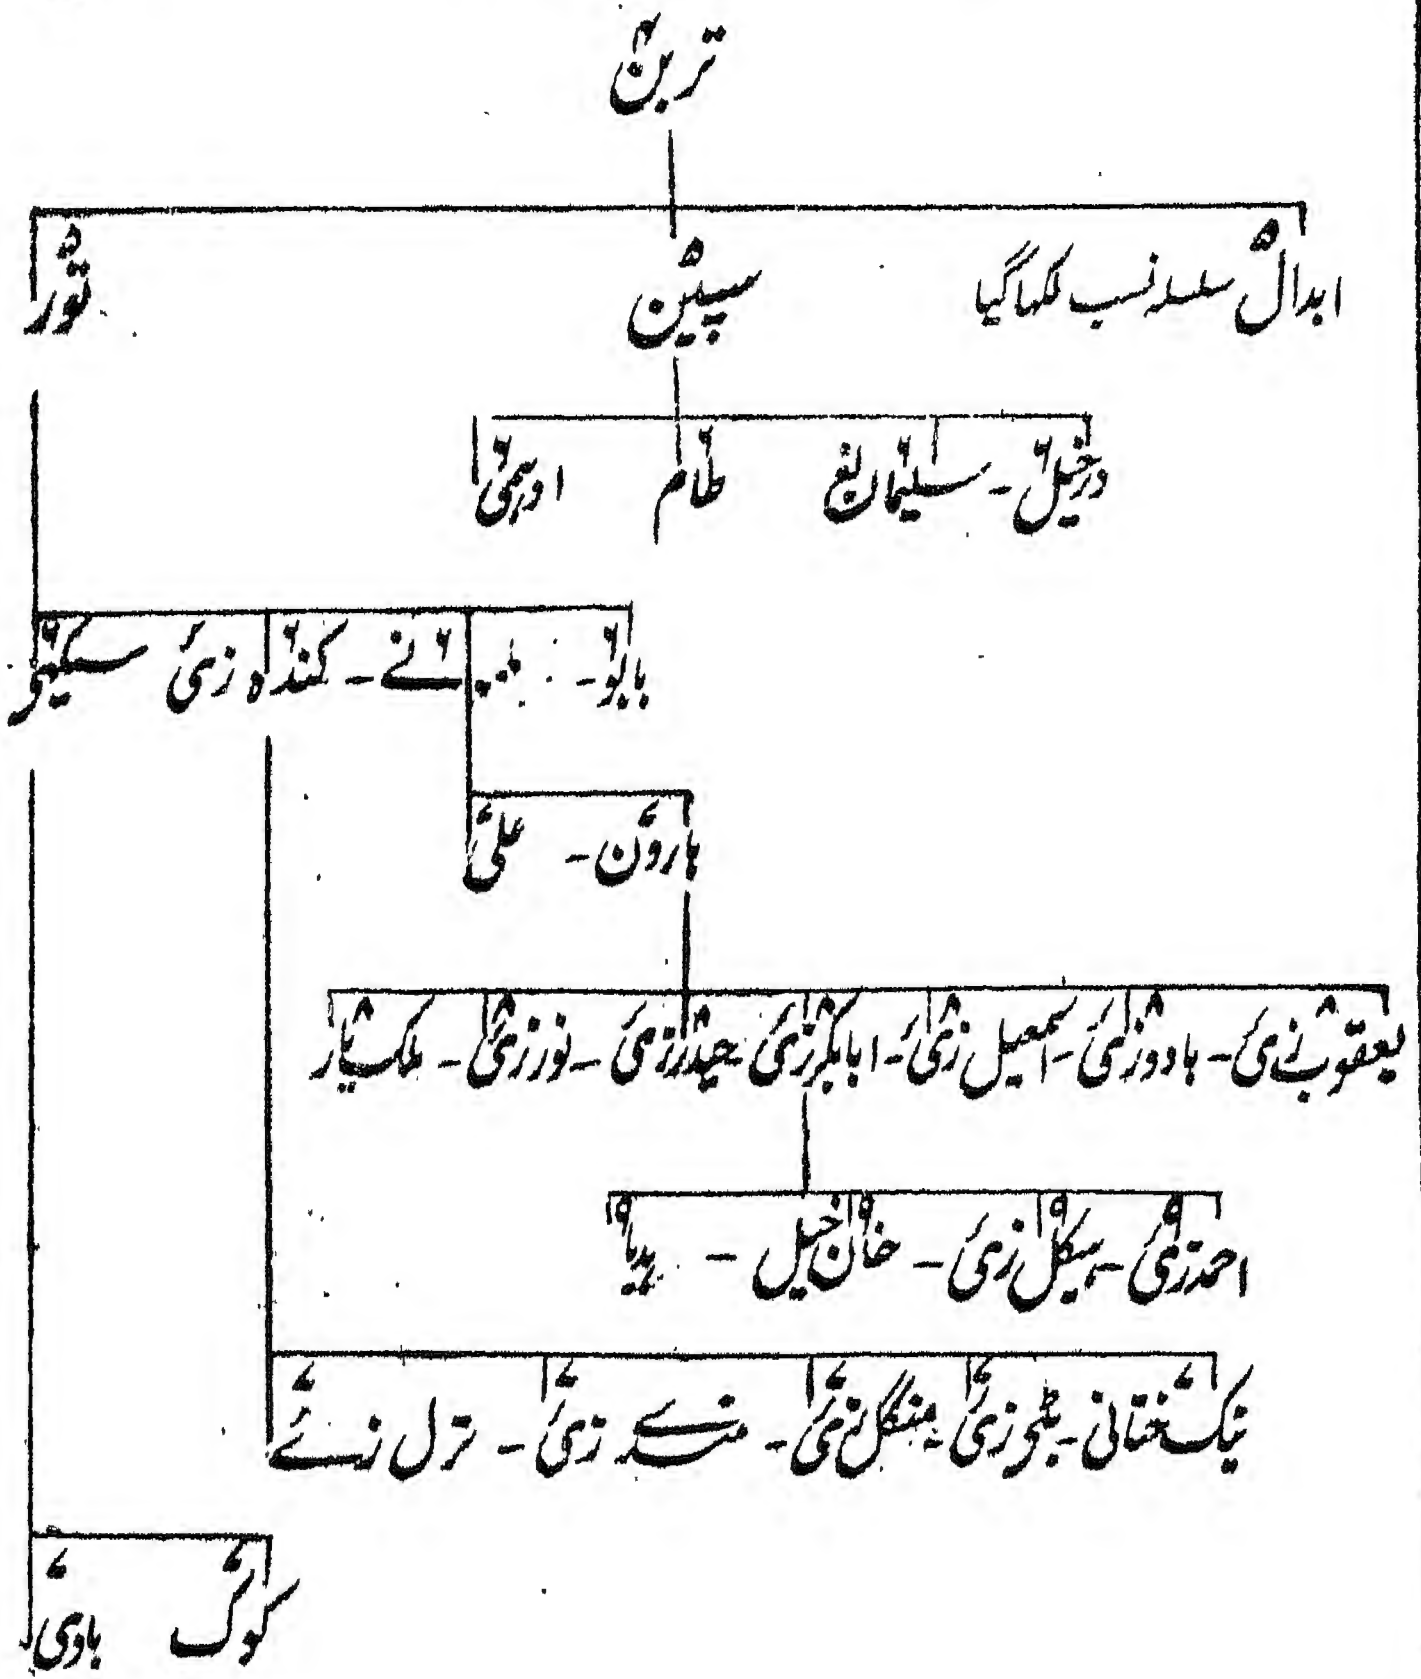 ترین ۴
ابدال ۵ سلسلہ نسب لکھا گیا سپین ۵ تور ۵
درخیل ۶ - سلیمان لغ ۶ طام ۶ اورمئی ۶
بابو ۶ - نے ۶ - کندہ ۶ زئی سیکھی ۶
ہارون ۷ - علی ۷
یعقوب زئی ۸ - ہادوزئی ۸ - اسمعیل زئی ۸ - ابابکرزئی ۸ - حیدرزئی ۸ - نورزئی ۸ - ملک یار ۸
احمدزئی ۹ - ہیکل زئی ۹ - خان خیل ۹ -
نیک ختانی ۷ - بٹی زئی ۷ - منگل زئی ۷ - مندے زئی ۷ - ترل زئے ۷
کوک ۷ باوی ۷